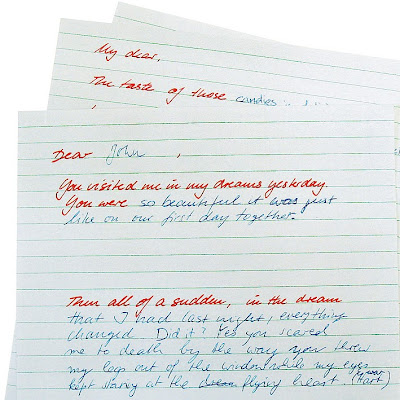 My dear,
The taste of those candies
Dear John,
You visited me in my dreams yesterday.
You were so beautiful it was just
like on our first day together.
Then all of a sudden, in the dream
that I had last night, everything
changed. Did it? Yes you scared
me to death by the way you threw
my leap out of the window while my eyes
kept staring at the flying heast. (Hart)